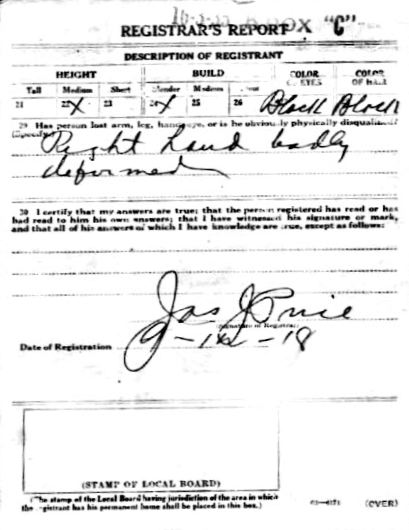 REGISTRAR'S REPORT "C"
DESCRIPTION OF REGISTRANT
HEIGHT BUILD COLOR COLOR
OF EYES OF HAIR
Tall Medium Short Slender Medium Stout
21 22 X 23 24 X 25 26 Black Black
29 Has person lost arm, leg, hand, eye, or is he obviously physically disqualified?
(Specify)
Right hand badly
deformed
30 I certify that my answers are true; that the person registered has read or has
had read to him his own answers; that I have witnessed his signature or mark,
and that all of his answers of which I have knowledge are true, except as follows:
Jas J Price
(Signature of Registrar)
Date of Registration 9-12-18
(STAMP OF LOCAL BOARD)
(The stamp of the Local Board having jurisdiction of the area in which
the registrant has his permanent home shall be placed in this box.)
(OVER)